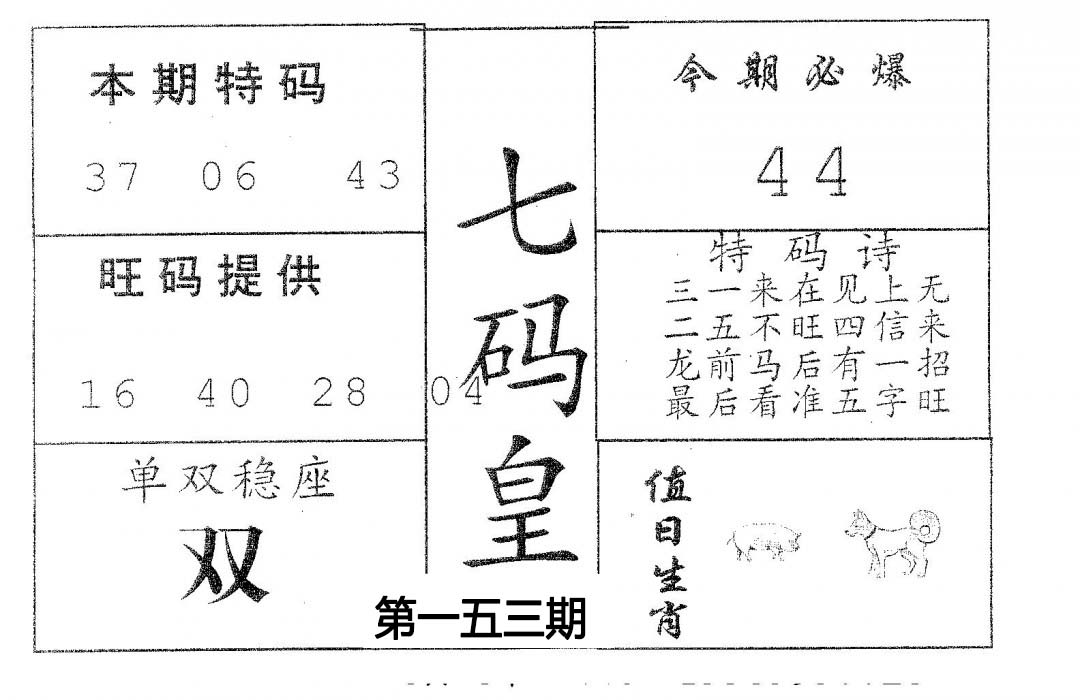 本期特码
37 06 43
旺码提供
16 40 28 04
单双稳座
双
七码皇
第一五三期
今期必爆
44
特码诗
三一来在见上无
二五不旺四信来
龙前马后有一招
最后看准五字旺
值日生肖